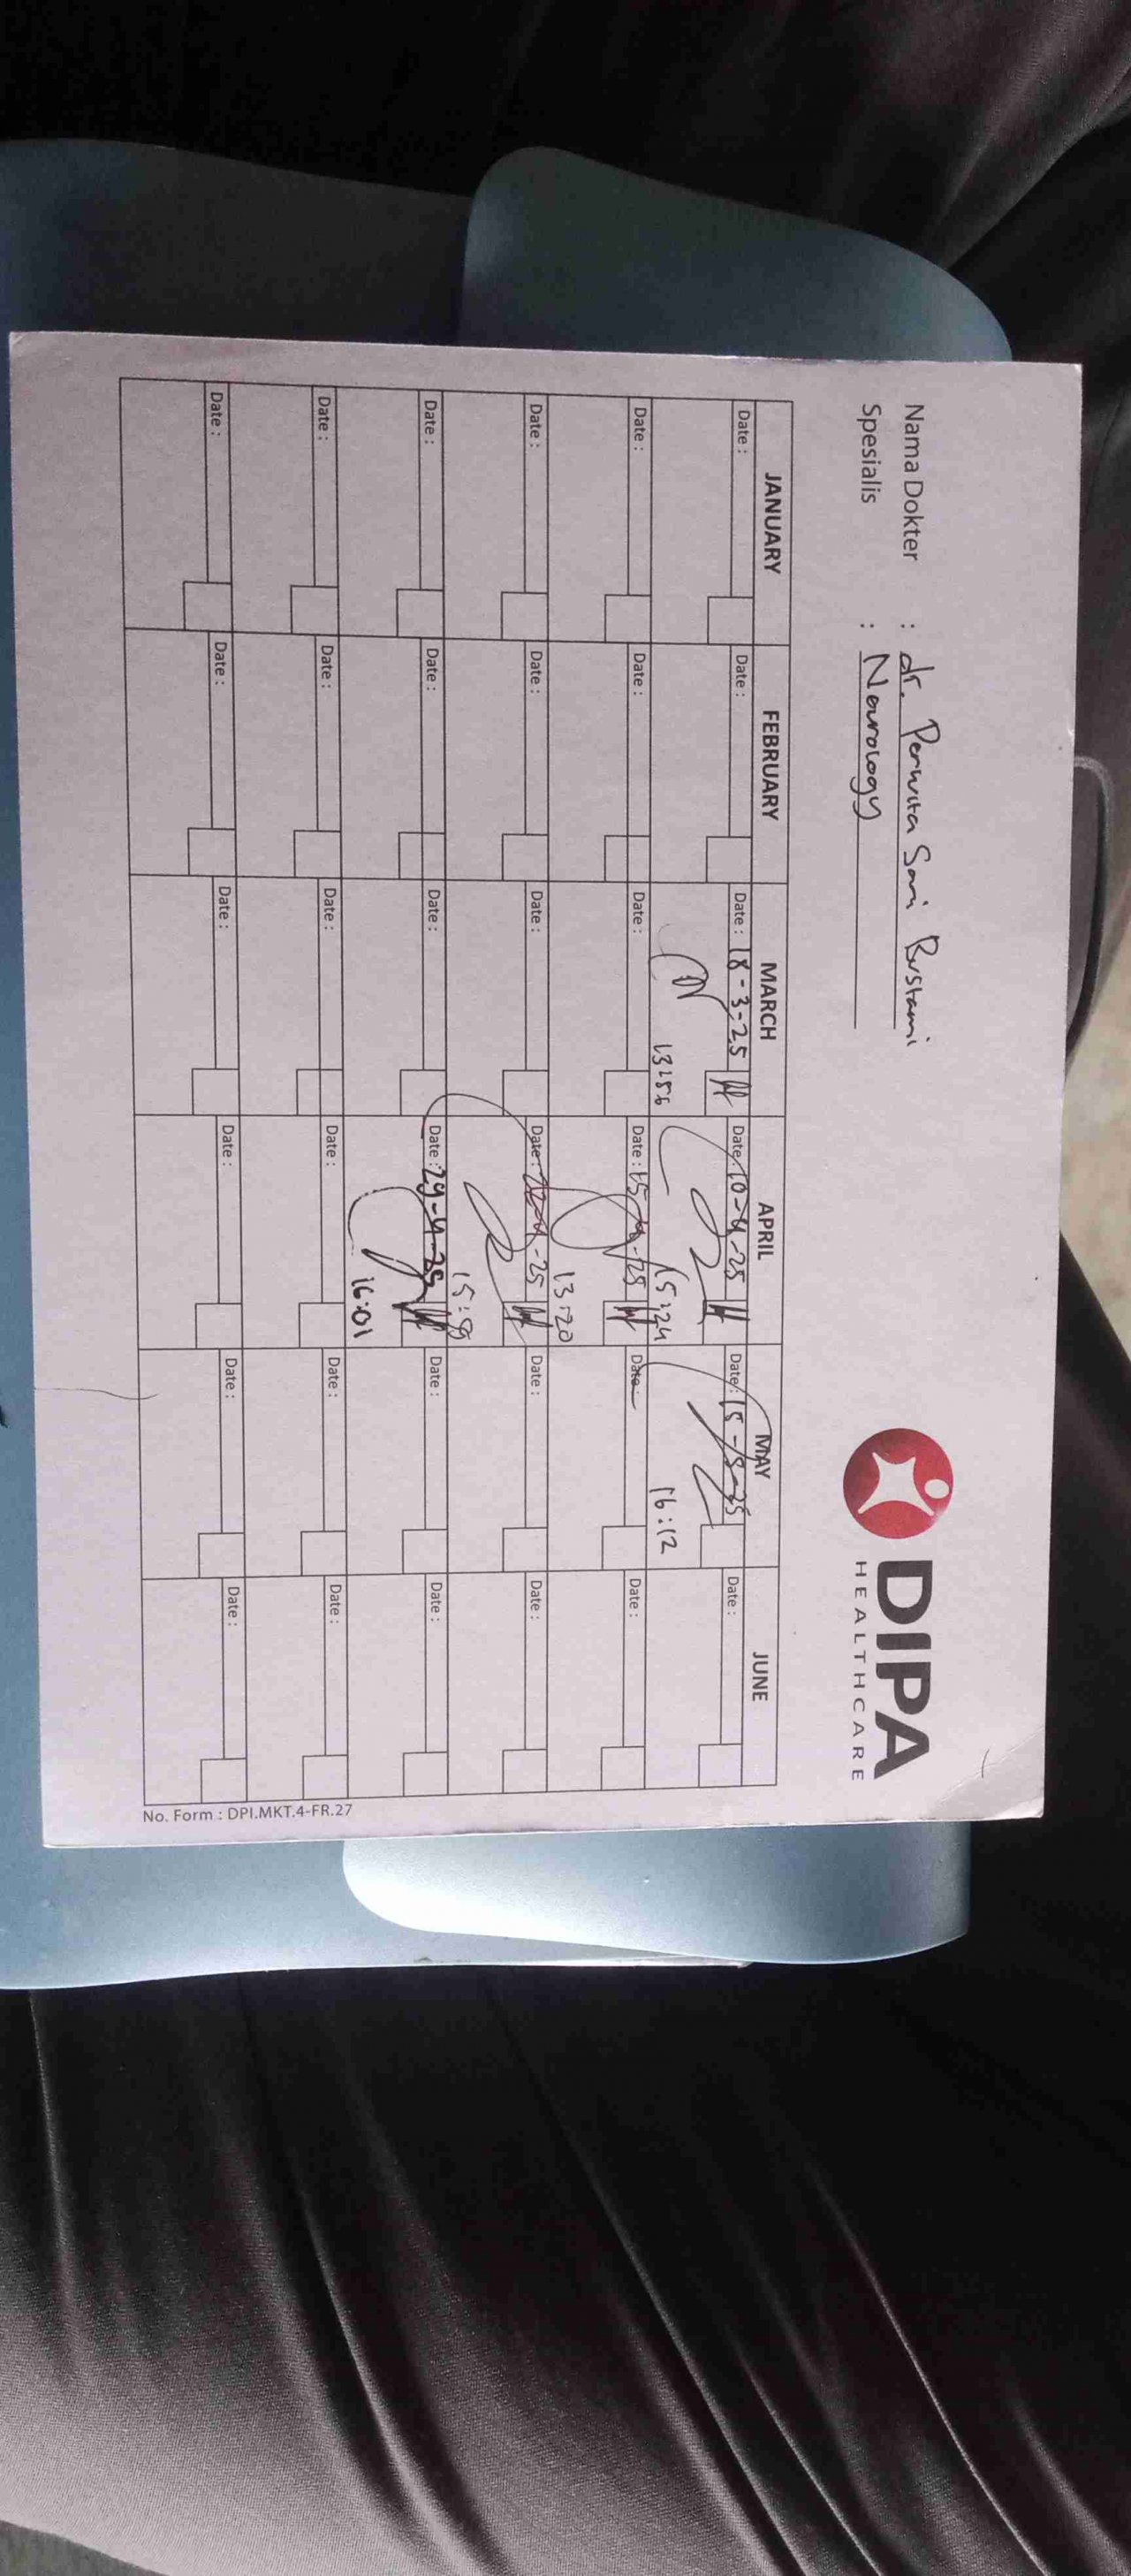 Nama Dokter : dr. Perwita Sari Bustami
Spesialis : Neurology
DIPA
HEALTHCARE
JANUARY FEBRUARY MARCH APRIL MAY JUNE
Date : Date : Date : 18-3-25 Date : 10-4-25 Date : 15-5-25 Date :
13:56 15:24 16:12
Date : Date : Date : Date : 15-4-25 Date : Date :
13:20
Date : Date : Date : Date : 22-4-25 Date : Date :
Date : Date : Date : Date : 29-4-25 Date : Date :
16:01
Date : Date : Date : Date : Date : Date :
Date : Date : Date : Date : Date : Date :
No. Form : DPI.MKT.4-FR.27